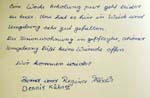 Eine Woche Erholung pur geht leider
zu Ende. Uns hat es hier im Wald und
Umgebung sehr gut gefallen.
Die Ferienwohnung in gepflegter, schöner
Umgebung läßt keine Wünsche offen.
Wir kommen wieder
und Regina
Dennis